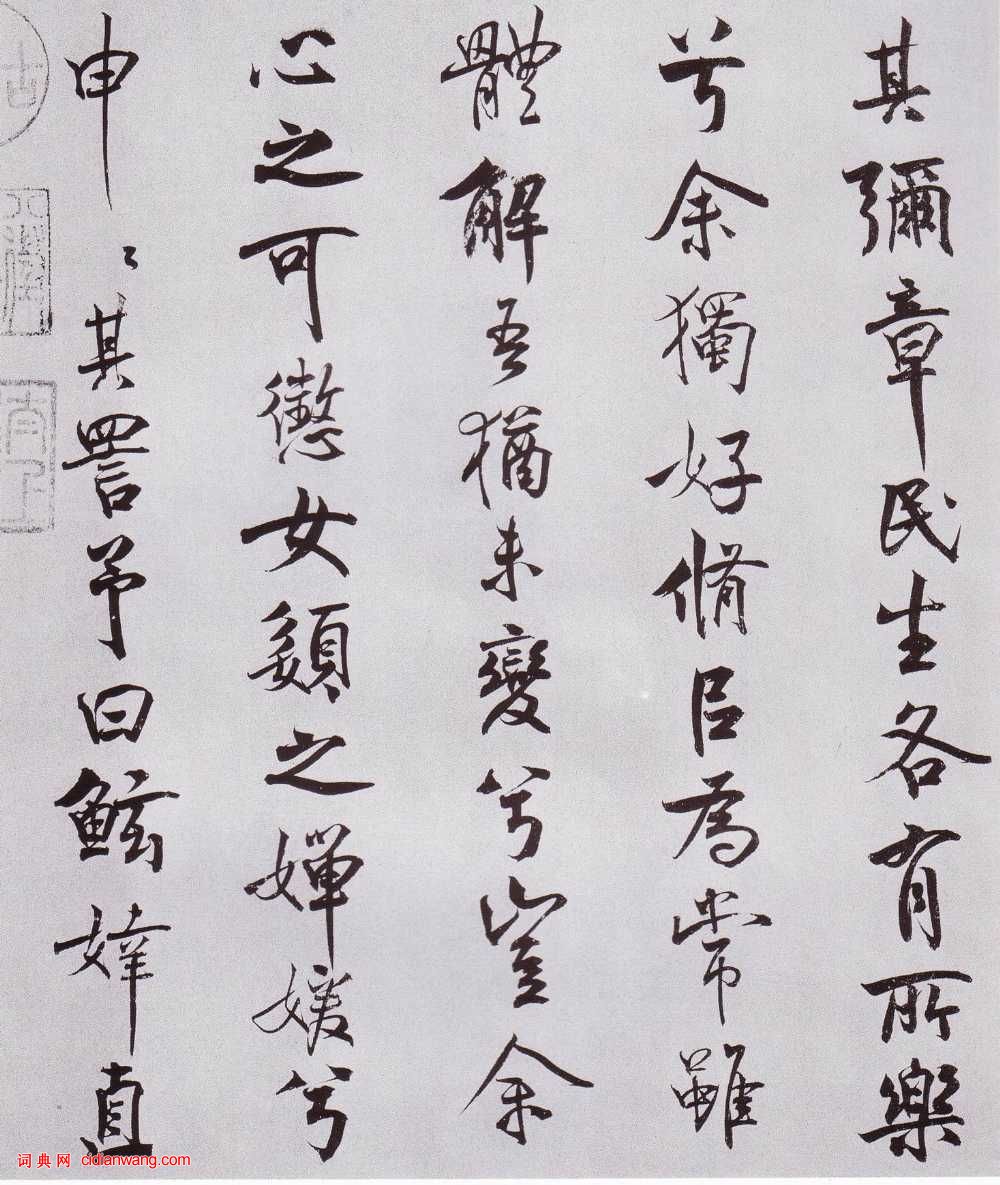 其彌章民生各有所樂
兮余獨好脩㠯為常雖
體解吾猶未變兮豈余
心之可懲女嬃之嬋媛兮
申〻其詈予曰鮌婞直
词典网 cidianwang.com